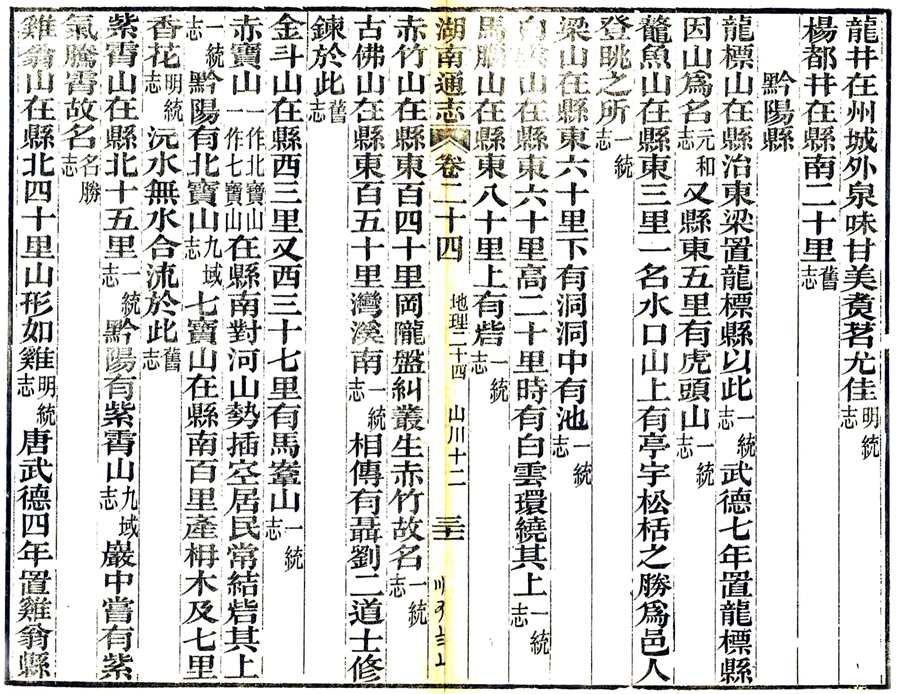 龍井在州城外泉味甘美煑茗尤佳明統志
楊都井在縣南二十里舊志
黔陽縣
龍標山在縣治東梁置龍標縣以此一統志武德七年置龍標縣
因山爲名元和志又縣東五里有虎頭山一統志
鼇魚山在縣東三里一名水口山上有亭宇松栝之勝爲邑人
登眺之所一統志
梁山在縣東六十里下有洞洞中有池一統志
白雲山在縣東六十里高二十里時有白雲環繞其上一統志
馬鵬山在縣東八十里上有砦一統志
湖南通志 卷二十四 地理二十四 山川十二
赤竹山在縣東百四十里岡隴盤糾叢生赤竹故名一統志
古佛山在縣東百五十里灣溪南一統志相傳有聶劉二道士修
鍊於此舊志
金斗山在縣西三里又西三十七里有馬鞌山一統志
赤寶山一作北寶山一作七寶山在縣南對河山勢插空居民常結砦其上
一統志黔陽有北寶山九域志七寶山在縣南百里產枬木及七里
香花明統志沅水無水合流於此舊志
紫霄山在縣北十五里一統志黔陽有紫霄山九域志巖中嘗有紫
氣騰霄故名名勝志
雞翁山在縣北四十里山形如雞明統志唐武德四年置雞翁縣